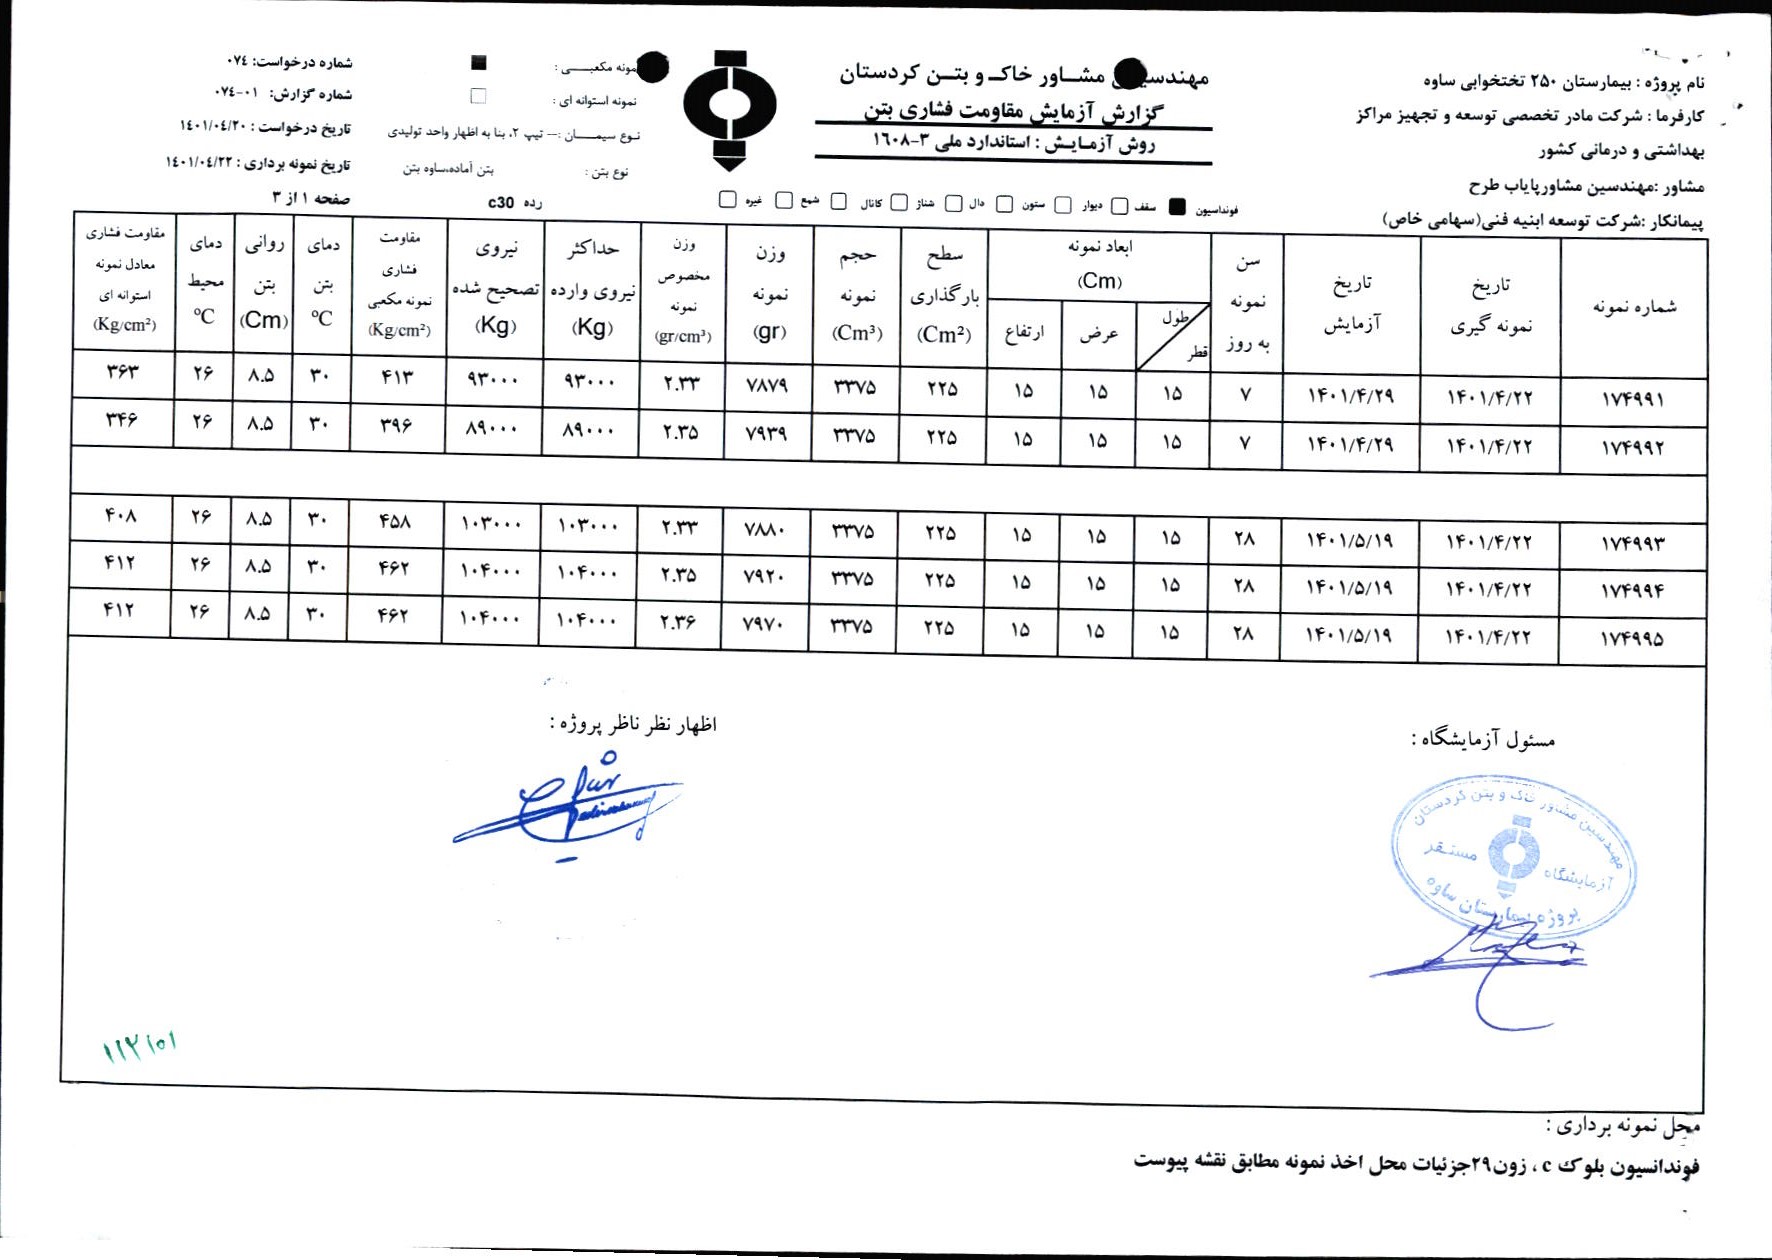 نام پروژه : بیمارستان ۲۵۰ تختخوابی ساوه
کارفرما : شرکت مادر تخصصی توسعه و تجهیز مراکز
بهداشتی و درمانی کشور
مشاور :مهندسین مشاورپایاب طرح
پیمانکار :شرکت توسعه ابنیه فنی(سهامی خاص)
مهندسین مشاور خاک و بتن کردستان
گزارش آزمایش مقاومت فشاری بتن
روش آزمایش : استاندارد ملی ۳-۱۶۰۸
نمونه مکعبی :
نمونه استوانه ای :
نوع سیمان :– تیپ ۲، بنا به اظهار واحد تولیدی
نوع بتن : بتن آماده،ساوه بتن
رده c30
شماره درخواست: ۰۷٤
شماره گزارش: ۰۱-۰۷٤
تاریخ درخواست : ۱٤۰۱/۰٤/۲۰
تاریخ نمونه برداری : ۱٤۰۱/۰٤/۲۲
صفحه ۱ از ۳
فونداسیون سقف دیوار ستون دال شناژ کانال شمع غیره
شماره نمونه
تاریخ نمونه گیری
تاریخ آزمایش
سن نمونه به روز
ابعاد نمونه (Cm)
طول قطر
عرض
ارتفاع
سطح بارگذاری (Cm²)
حجم نمونه (Cm³)
وزن نمونه (gr)
وزن مخصوص نمونه (gr/cm³)
حداکثر نیروی وارده (Kg)
نیروی تصحیح شده (Kg)
مقاومت فشاری نمونه مکعبی (Kg/cm²)
دمای بتن ºC
روانی بتن (Cm)
دمای محیط ºC
مقاومت فشاری معادل نمونه استوانه ای (Kg/cm²)
۱۷۴۹۹۱ ۱۴۰۱/۴/۲۲ ۱۴۰۱/۴/۲۹ ۷ ۱۵ ۱۵ ۱۵ ۲۲۵ ۳۳۷۵ ۷۸۷۹ ۲.۳۳ ۹۳۰۰۰ ۹۳۰۰۰ ۴۱۳ ۳۰ ۸.۵ ۲۶ ۳۶۳
۱۷۴۹۹۲ ۱۴۰۱/۴/۲۲ ۱۴۰۱/۴/۲۹ ۷ ۱۵ ۱۵ ۱۵ ۲۲۵ ۳۳۷۵ ۷۹۳۹ ۲.۳۵ ۸۹۰۰۰ ۸۹۰۰۰ ۳۹۶ ۳۰ ۸.۵ ۲۶ ۳۴۶
۱۷۴۹۹۳ ۱۴۰۱/۴/۲۲ ۱۴۰۱/۵/۱۹ ۲۸ ۱۵ ۱۵ ۱۵ ۲۲۵ ۳۳۷۵ ۷۸۸۰ ۲.۳۳ ۱۰۳۰۰۰ ۱۰۳۰۰۰ ۴۵۸ ۳۰ ۸.۵ ۲۶ ۴۰۸
۱۷۴۹۹۴ ۱۴۰۱/۴/۲۲ ۱۴۰۱/۵/۱۹ ۲۸ ۱۵ ۱۵ ۱۵ ۲۲۵ ۳۳۷۵ ۷۹۲۰ ۲.۳۵ ۱۰۴۰۰۰ ۱۰۴۰۰۰ ۴۶۲ ۳۰ ۸.۵ ۲۶ ۴۱۲
۱۷۴۹۹۵ ۱۴۰۱/۴/۲۲ ۱۴۰۱/۵/۱۹ ۲۸ ۱۵ ۱۵ ۱۵ ۲۲۵ ۳۳۷۵ ۷۹۷۰ ۲.۳۶ ۱۰۴۰۰۰ ۱۰۴۰۰۰ ۴۶۲ ۳۰ ۸.۵ ۲۶ ۴۱۲
مسئول آزمایشگاه :
اظهار نظر ناظر پروژه :
مهندسین مشاور خاک و بتن کردستان
آزمایشگاه مستقر
پروژه بیمارستان ساوه
محل نمونه برداری :
فوندانسیون بلوک c ، زون۲۹جزئیات محل اخذ نمونه مطابق نقشه پیوست